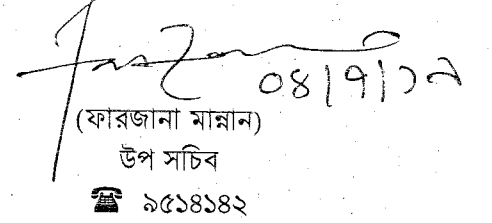 ০৪|৭|১৯
(ফারজানা মান্নান)
উপ সচিব
☎ ৯৫১৪১৪২